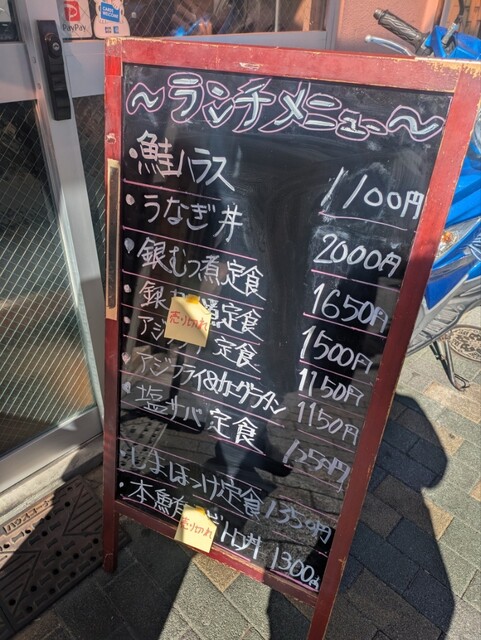 PayPay
〜ランチメニュー〜
・鮭ハラス 1100円
・うなぎ丼 2000円
・銀むつ煮定食 1650円
・銀 煮定食 1500円
売り切れ
・アジフライ定食 1150円
・アジフライ&カニグラタン 1150円
・塩サバ定食 1250円
・しまほっけ定食 1350円
・本鮪 トロ丼 1300円
売り切れ